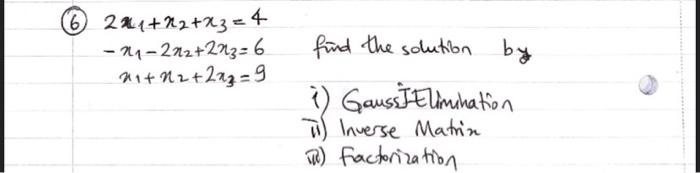 ⑥ 2x₁+x₂+x₃=4
-x₁-2x₂+2x₃=6 find the solution by
x₁+x₂+2x₃=9
i) Gauss J Elimination
ii) Inverse Matrix
iii) Factorization